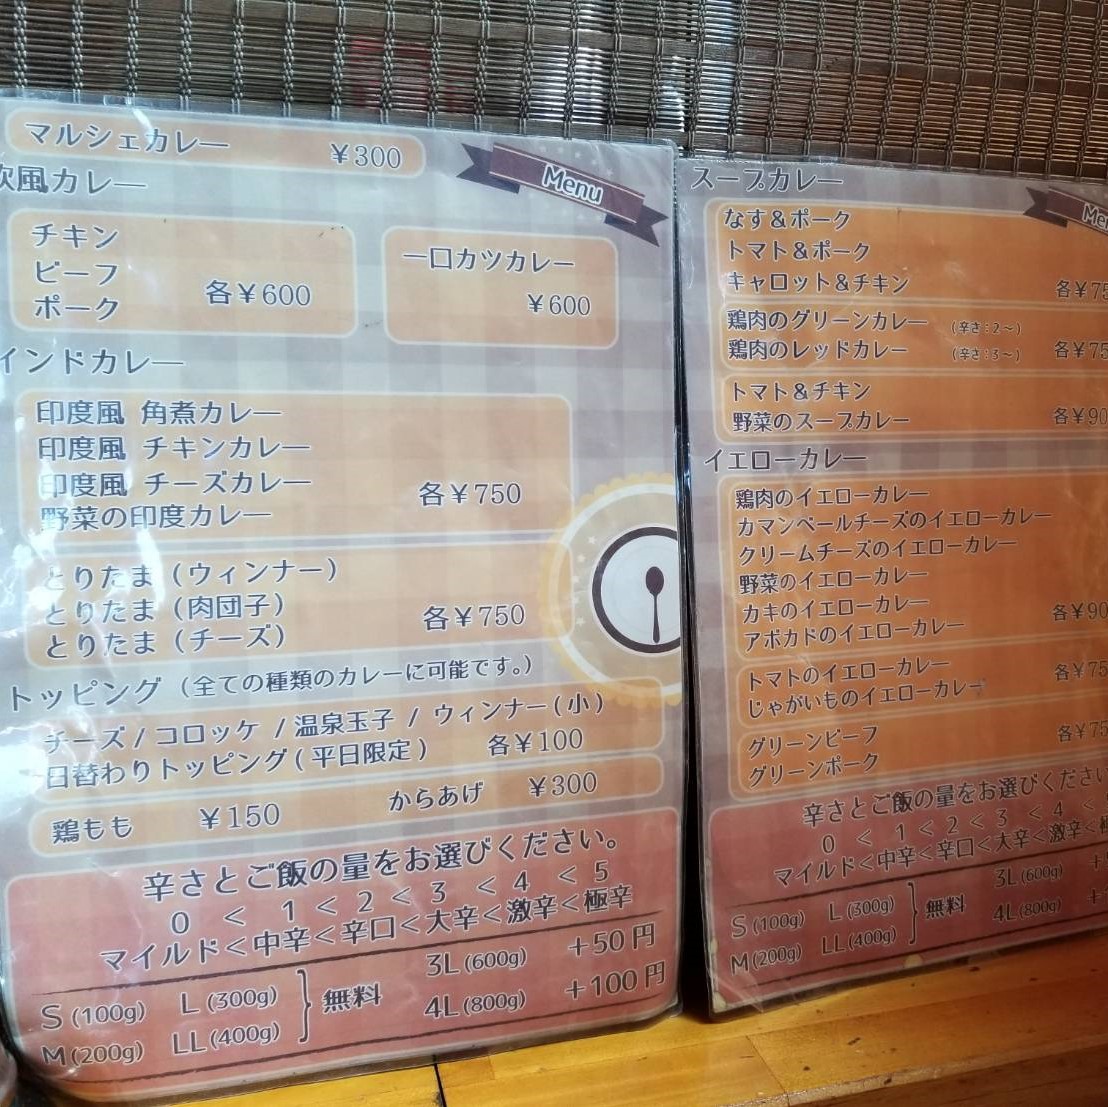 マルシェカレー ¥300
Menu
欧風カレー
チキン
ビーフ
ポーク 各¥600
一口カツカレー
¥600
インドカレー
印度風 角煮カレー
印度風 チキンカレー
印度風 チーズカレー
野菜の印度カレー 各¥750
とりたま（ウィンナー）
とりたま（肉団子）
とりたま（チーズ） 各¥750
トッピング（全ての種類のカレーに可能です。）
チーズ/コロッケ/温泉玉子/ウィンナー(小)
日替わりトッピング(平日限定) 各¥100
鶏もも ¥150 からあげ ¥300
辛さとご飯の量をお選びください。
0 < 1 < 2 < 3 < 4 < 5
マイルド<中辛<辛口<大辛<激辛<極辛
S(100g) L(300g) 無料 3L(600g) +50円
M(200g) LL(400g) 4L(800g) +100円
スープカレー
なす&ポーク
トマト&ポーク
キャロット&チキン 各¥75
鶏肉のグリーンカレー (辛さ:2〜)
鶏肉のレッドカレー (辛さ:3〜) 各¥75
トマト&チキン
野菜のスープカレー 各¥90
イエローカレー
鶏肉のイエローカレー
カマンベールチーズのイエローカレー
クリームチーズのイエローカレー
野菜のイエローカレー
カキのイエローカレー
アボカドのイエローカレー 各¥90
トマトのイエローカレー
じゃがいものイエローカレー 各¥75
グリーンビーフ
グリーンポーク 各¥75
辛さとご飯の量をお選びください
0 < 1 < 2 < 3 < 4 <
マイルド<中辛<辛口<大辛<激辛<極
S(100g) L(300g) 無料 3L(600g)
M(200g) LL(400g) 4L(800g)